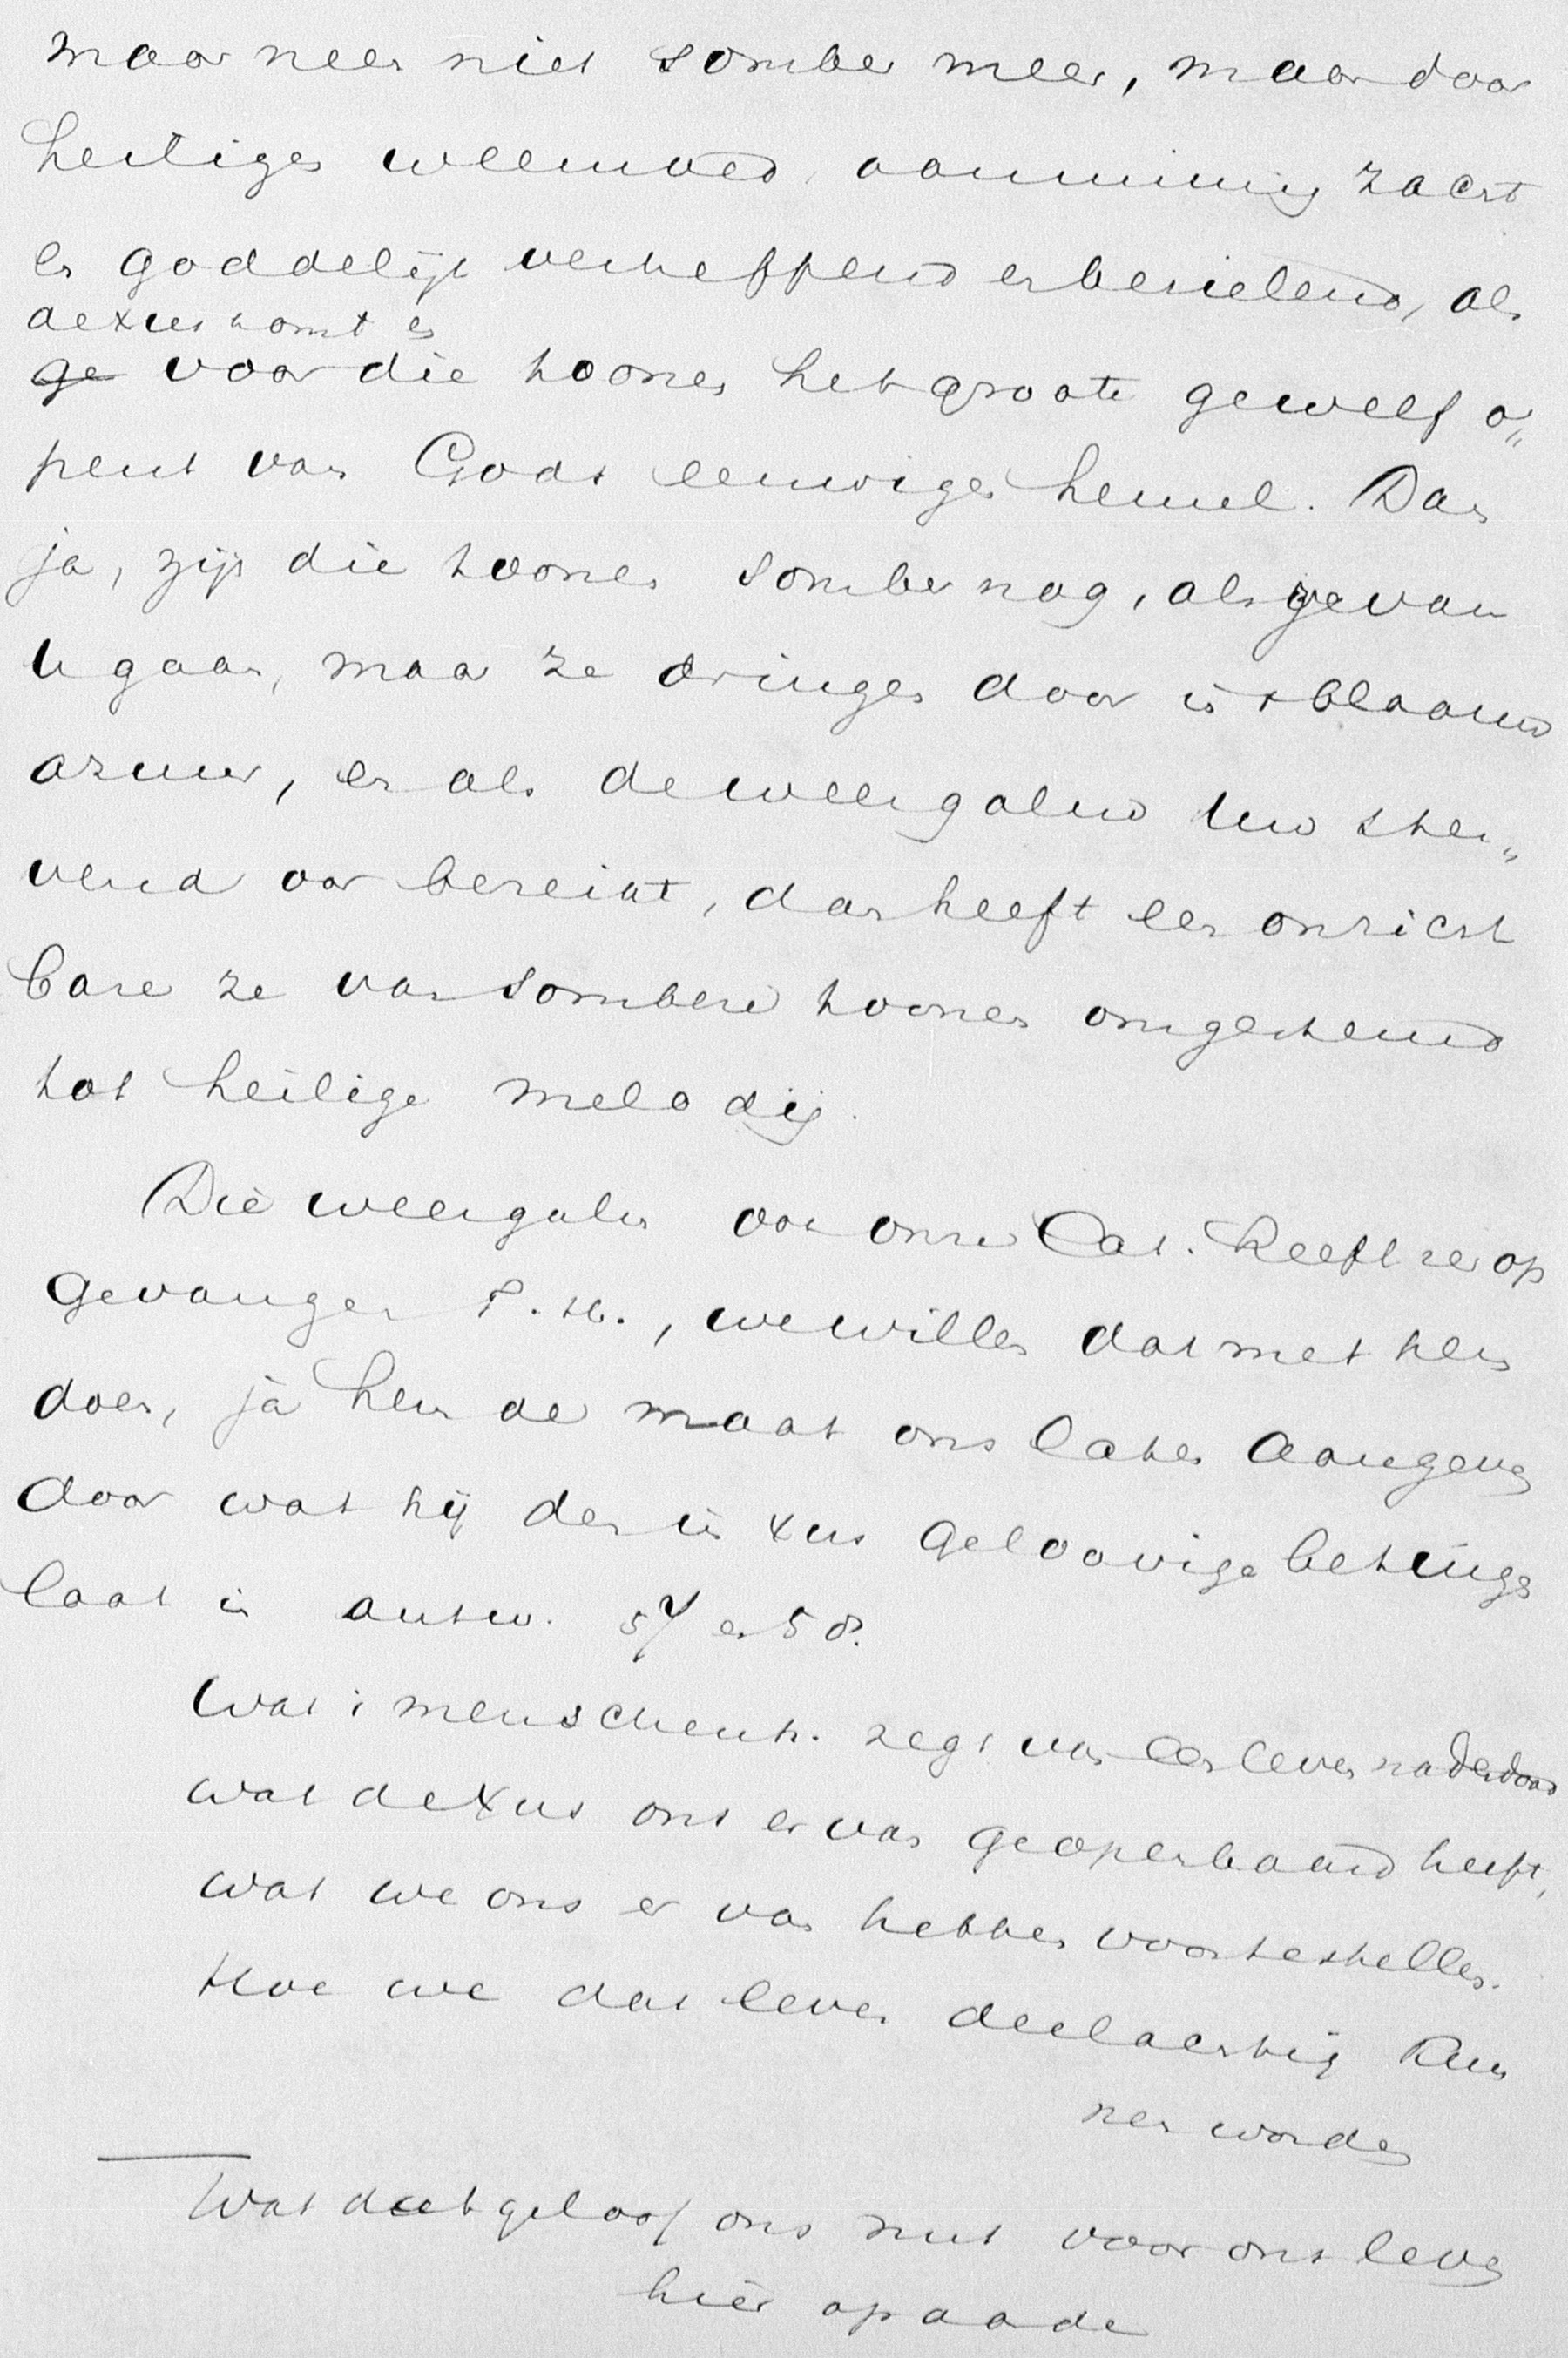 maar neen niet somber meer, maar door
heiligen weemoed, aanminnig zacht
en goddelijk verheffend en bezielend, als
de Xus komt en
ge voor die toonen het groote gewelf o„
pent van Gods eeuwigen hemel. Dan
ja, zijn die toonen somber nog, als ze van
u gaan, maar ze dringen door in 't blaauw
azuur, en als de weergalm uw ster„
vend oor bereikt, dan heeft een onzicht
bare ze van sombere toonen omgestemd
tot heilige melodij.
Die weergalm van onze Cat. heeft ze op
gevangen g. H., we willen dat met hem
doen, ja hem de maat ons laten aangeven
door wat hij den in Xus geloovige betuigen
laat in antw. 57 en 58.
Wat 't menschenh. zegt van een leven na den dood
wat de Xus ons er van geopenbaard heeft,
wat we ons er van hebben voor te stellen.
Hoe we dat leven deelachtig kun
nen worden
Wat dat geloof ons nut voor ons leven
hier op aarde